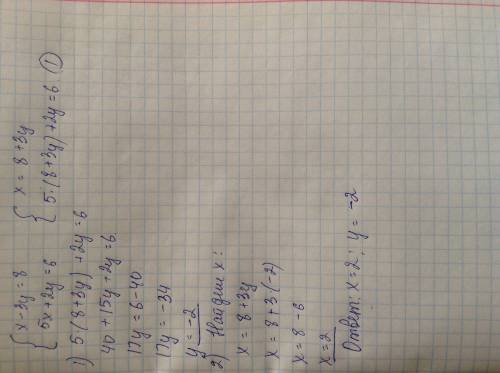 { x-3y=8 { x = 8+3y
{ 5x+2y=6 { 5·(8+3y)+2y=6 ①
1) 5·(8+3y)+2y=6
40+15y+2y=6
17y=6-40
17y=-34
y=-2
2) Найдем x:
x=8+3y
x=8+3·(-2)
x=8-6
x=2
Ответ: x=2; y=-2